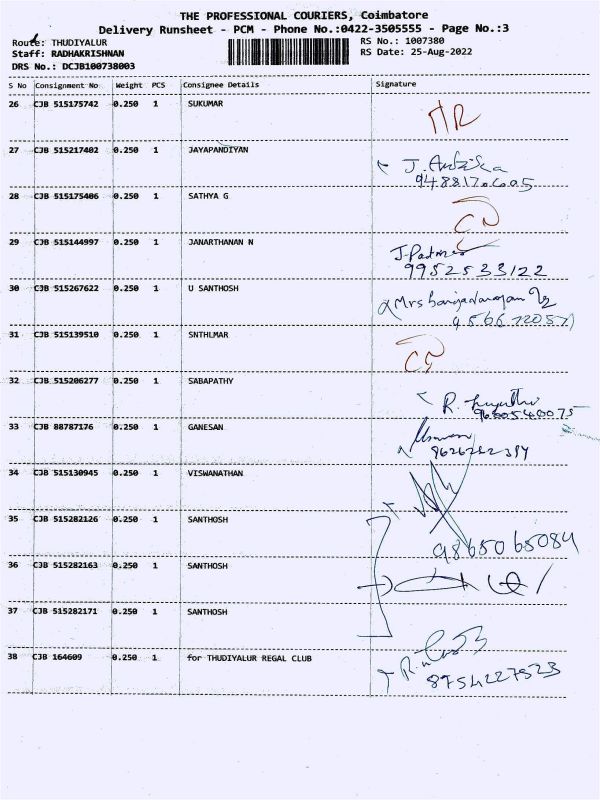 THE PROFESSIONAL COURIERS, Coimbatore
Delivery Runsheet - PCM - Phone No.:0422-3505555 - Page No.:3
Route: THUDIYALUR
RS No.: 1007380
Staff: RADHAKRISHNAN
RS Date: 25-Aug-2022
DRS No.: DCJB100738003
S No Consignment No Weight PCS Consignee Details Signature
26 CJB 515175742 0.250 1 SUKUMAR
27 CJB 515217402 0.250 1 JAYAPANDIYAN
28 CJB 515175406 0.250 1 SATHYA G
29 CJB 515144997 0.250 1 JANARTHANAN N
9952533122
30 CJB 515267622 0.250 1 U SANTHOSH
31 CJB 515139510 0.250 1 SNTHLMAR
32 CJB 515206277 0.250 1 SABAPATHY
9600540075
33 CJB 88787176 0.250 1 GANESAN
34 CJB 515130945 0.250 1 VISWANATHAN
35 CJB 515282126 0.250 1 SANTHOSH
9865065084
36 CJB 515282163 0.250 1 SANTHOSH
37 CJB 515282171 0.250 1 SANTHOSH
38 CJB 164609 0.250 1 for THUDIYALUR REGAL CLUB
8754227523